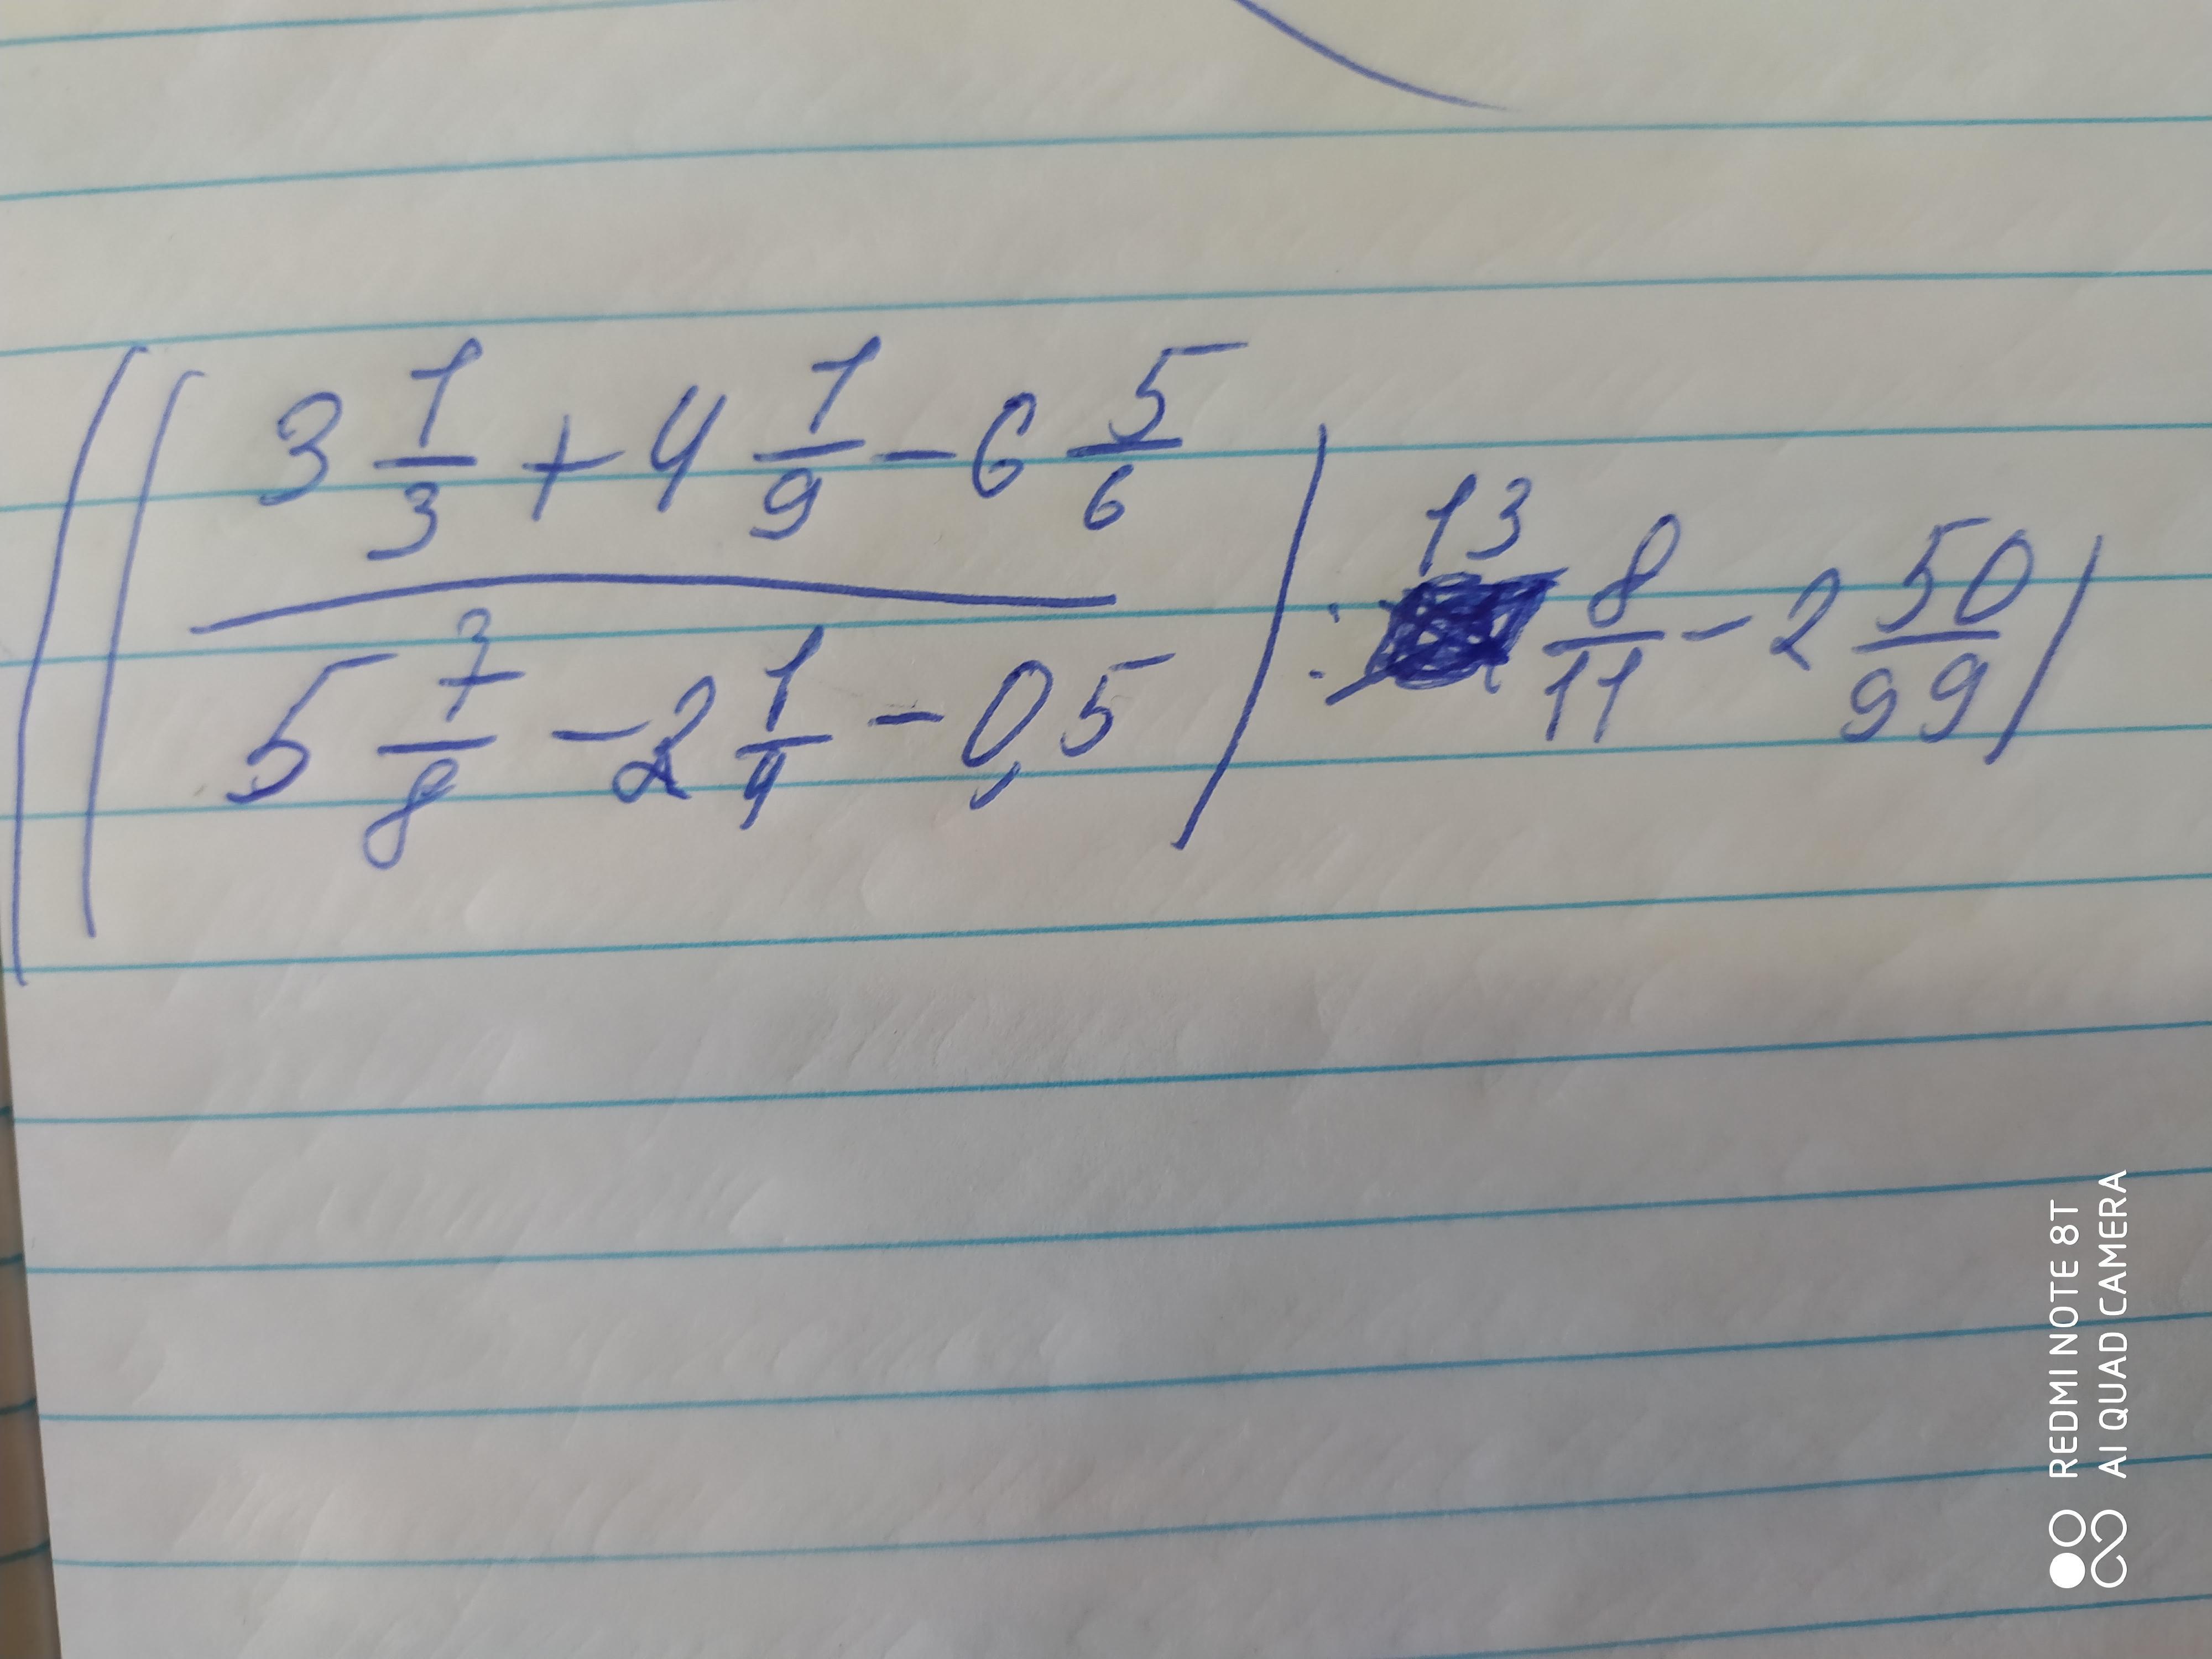 ((3 1/3 + 4 1/9 - 6 5/6
5 7/8 - 2 1/4 - 0,5) : 13 8/11 - 2 50/99)
REDMI NOTE 8T
AI QUAD CAMERA